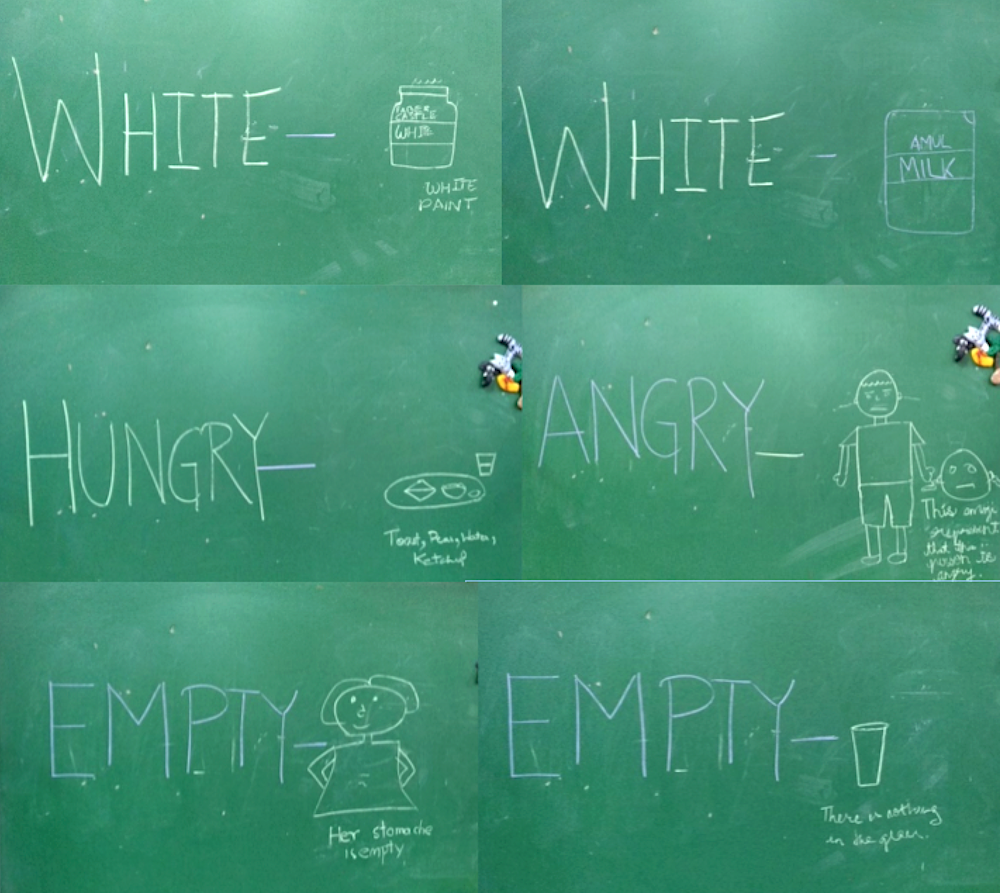 WHITE –
FABER
CASTLE
WHITE
WHITE
PAINT
WHITE –
AMUL
MILK
HUNGRY –
Toast, Peas, Water,
Ketchup
ANGRY –
This emoji
represent
that the
person is
angry.
EMPTY –
Her stomache
is empty
EMPTY –
There is nothing
in the glass.